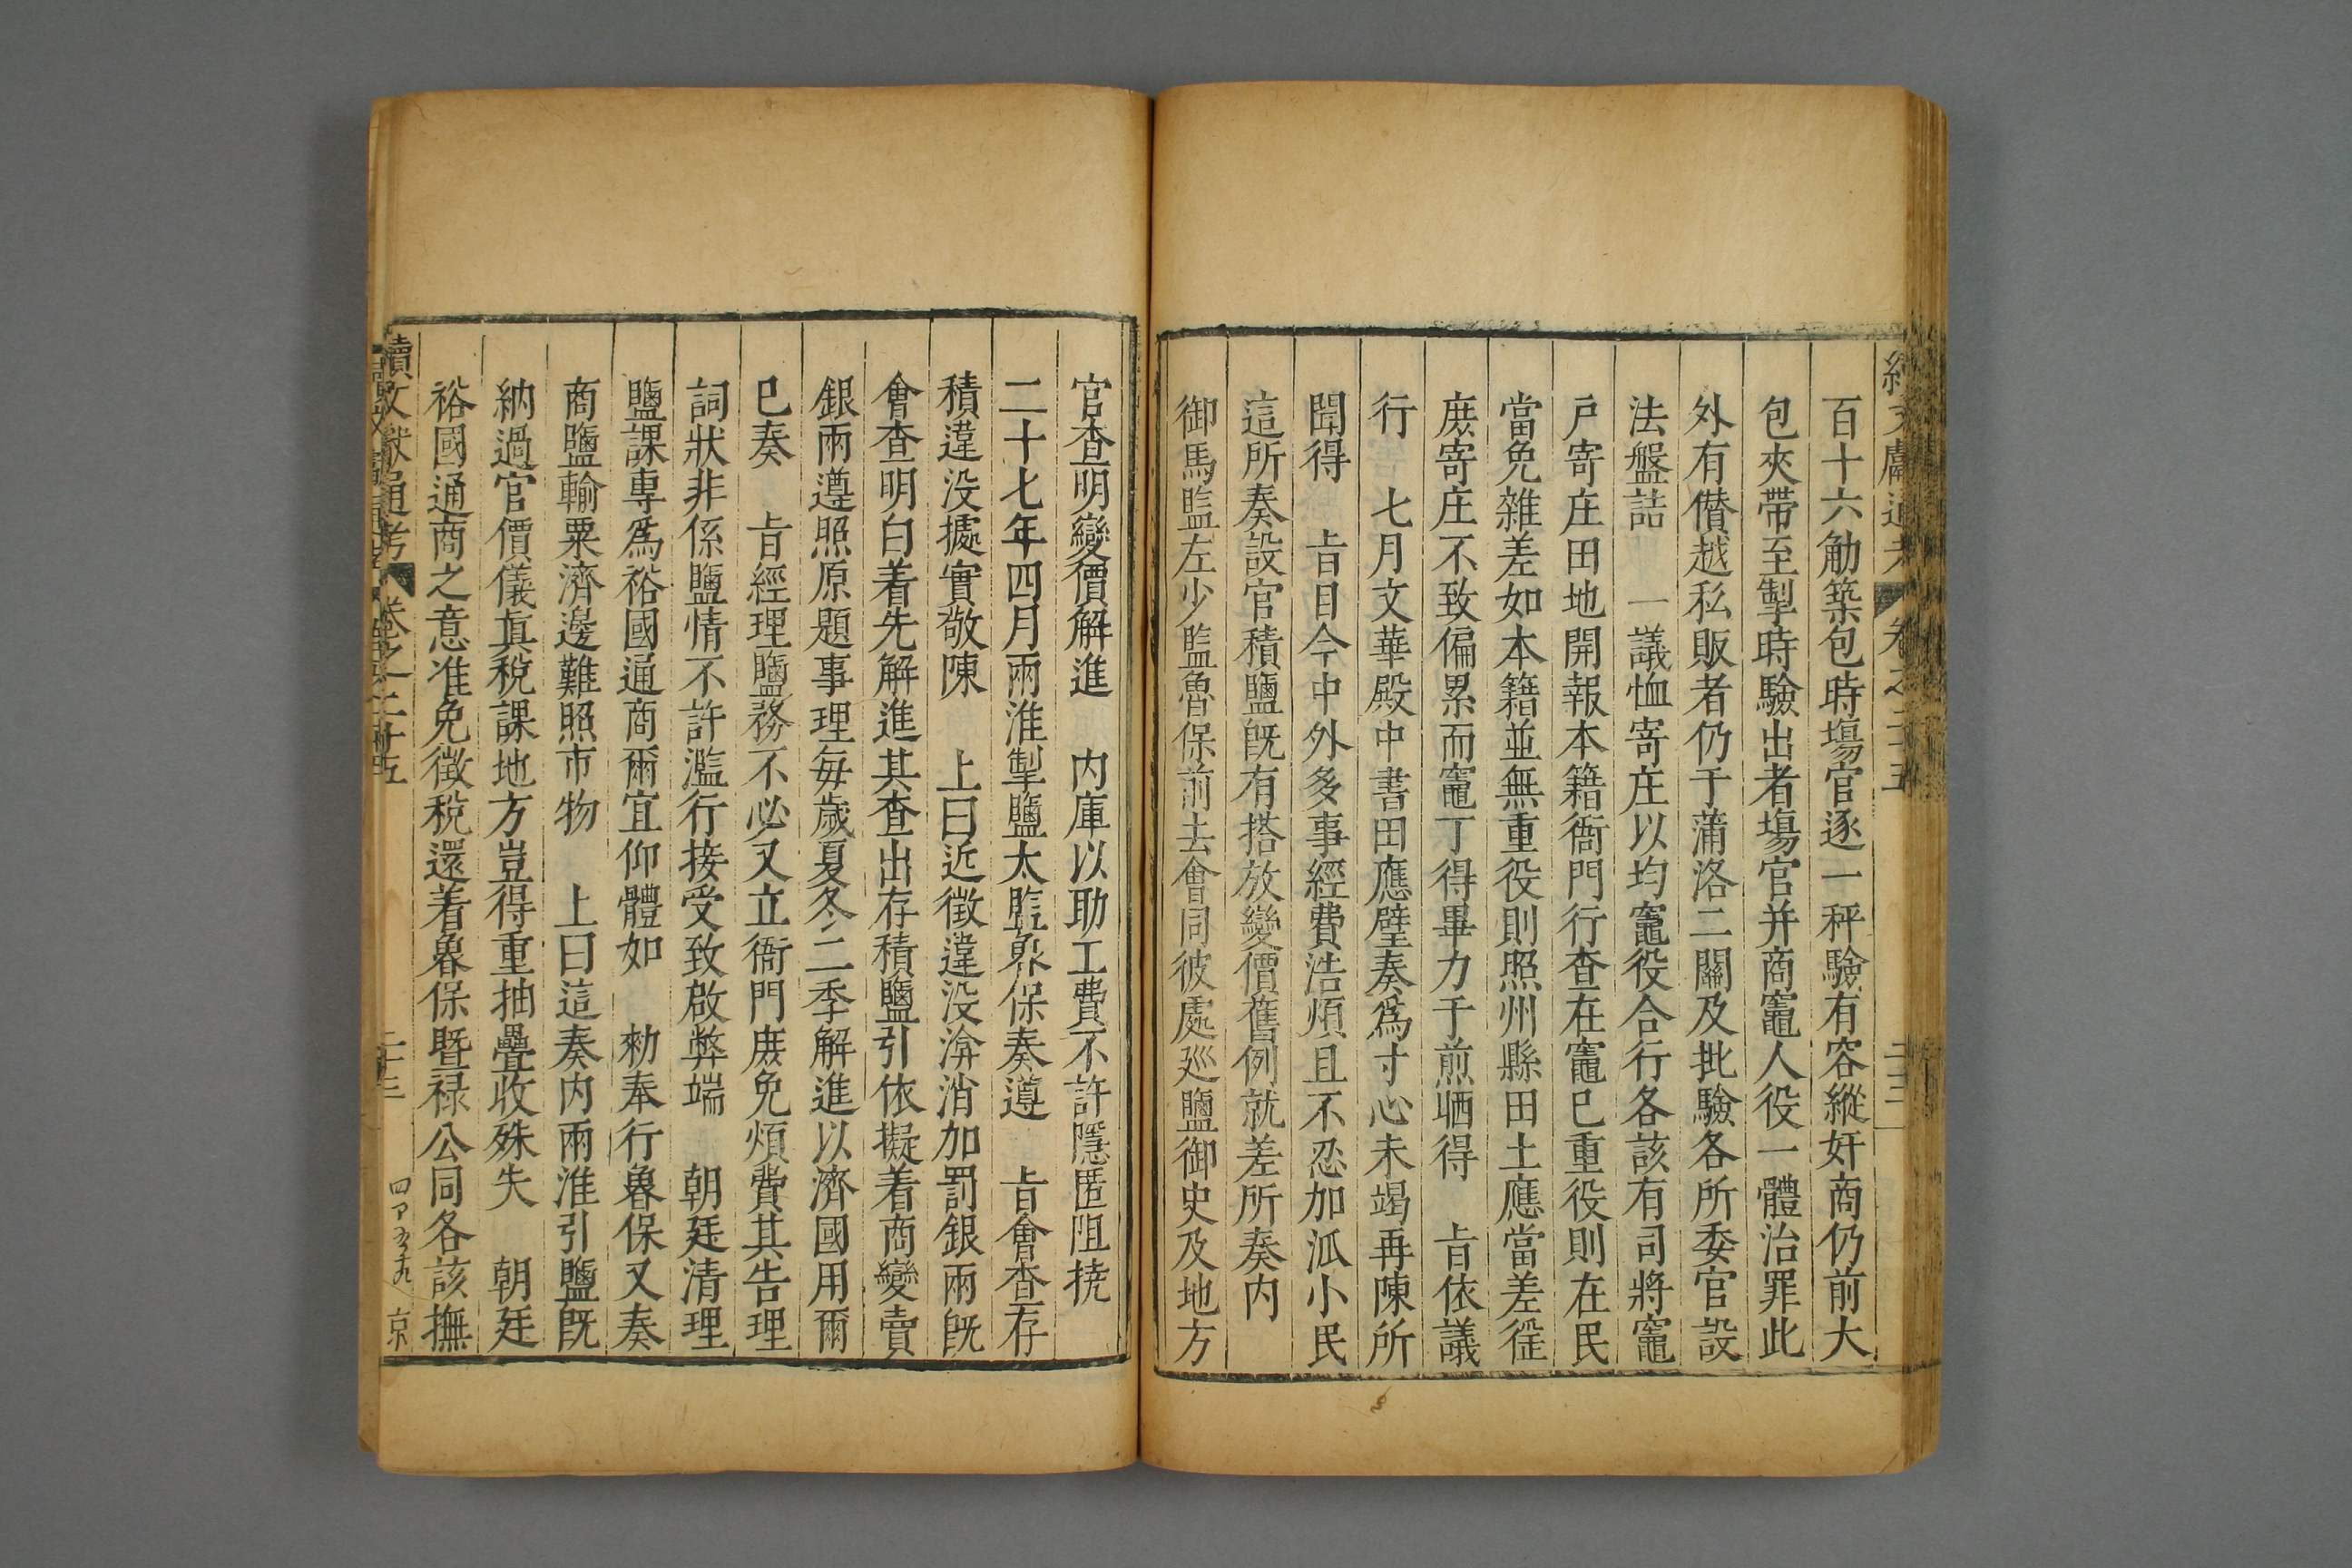 續文獻通考 卷之二十五 二十二
百十六觔築包時塲官逐一秤驗有容縱奸商仍前大
包夾帶至掣時驗出者塲官并商竈人役一體治罪此
外有僣越私販者仍于蒲洛二關及批驗各所委官設
法盤詰 一議恤寄庄以均竈役合行各該有司將竈
戸寄庄田地開報本籍衙門行查在竈已重役則在民
當免雜差如本籍並無重役則照州縣田土應當差徭
庻寄庄不致偏累而竈丁得畢力于煎晒得 㫖依議
行 七月文華殿中書田應璧奏爲寸心未竭再陳所
聞得 㫖目今中外多事經費浩煩且不忍加派小民
這所奏設官積鹽既有搭放變價舊例就差所奏内
御馬監左少監魯保前去會同彼處巡鹽御史及地方
官查明變價解進 内庫以助工費不許隱匿阻撓
二十七年四月兩淮掣鹽太監魯保奏遵 㫖會查存
積違没據實敬陳 上曰近徵違没渰消加罰銀兩既
會查明白着先解進其查出存積鹽引依擬着商變賣
銀兩遵照原題事理每歲夏冬二季解進以濟國用爾
已奏 㫖經理鹽務不必又立衙門庻免煩費其告理
詞狀非係鹽情不許濫行接受致啟弊端 朝廷清理
鹽課專爲裕國通商爾宜仰體如 勑奉行魯保又奏
商鹽輸粟濟邊難照市物 上曰這奏内兩淮引鹽既
納過官價儀真稅課地方豈得重抽疊收殊失 朝廷
裕國通商之意准免徵稅還着魯保暨禄公同各該撫
續文獻通考 卷之二十五 二十三 京